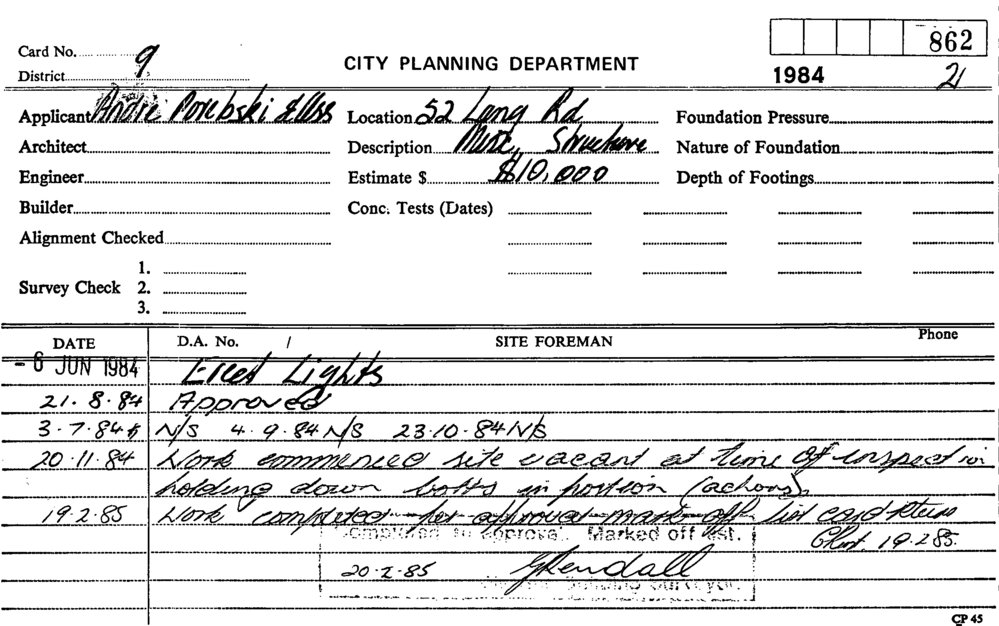 862
Card No. 9
CITY PLANNING DEPARTMENT
1984 21
District
Applicant Andre Porebski & Ass Location 52 Lang Rd Foundation Pressure
Architect Description Misc, Structure Nature of Foundation
Engineer Estimate $ $10,000 Depth of Footings
Builder Conc. Tests (Dates)
Alignment Checked
1.
Survey Check 2.
3.
DATE D.A. No. / SITE FOREMAN Phone
- 6 JUN 1984 Erect Lights
21.8.84 Approved
3.7.84 N/S 4.9.84 N/S 23.10.84 N/S
20.11.84 Work commenced site vacant at time of inspection
holding down bolts in portion (achors)
19.2.85 Work completed per approval mark off list card
19.2.85.
Completed to approval. Marked off list.
20-2-85 GKendall
Building Surveyor
CP 45